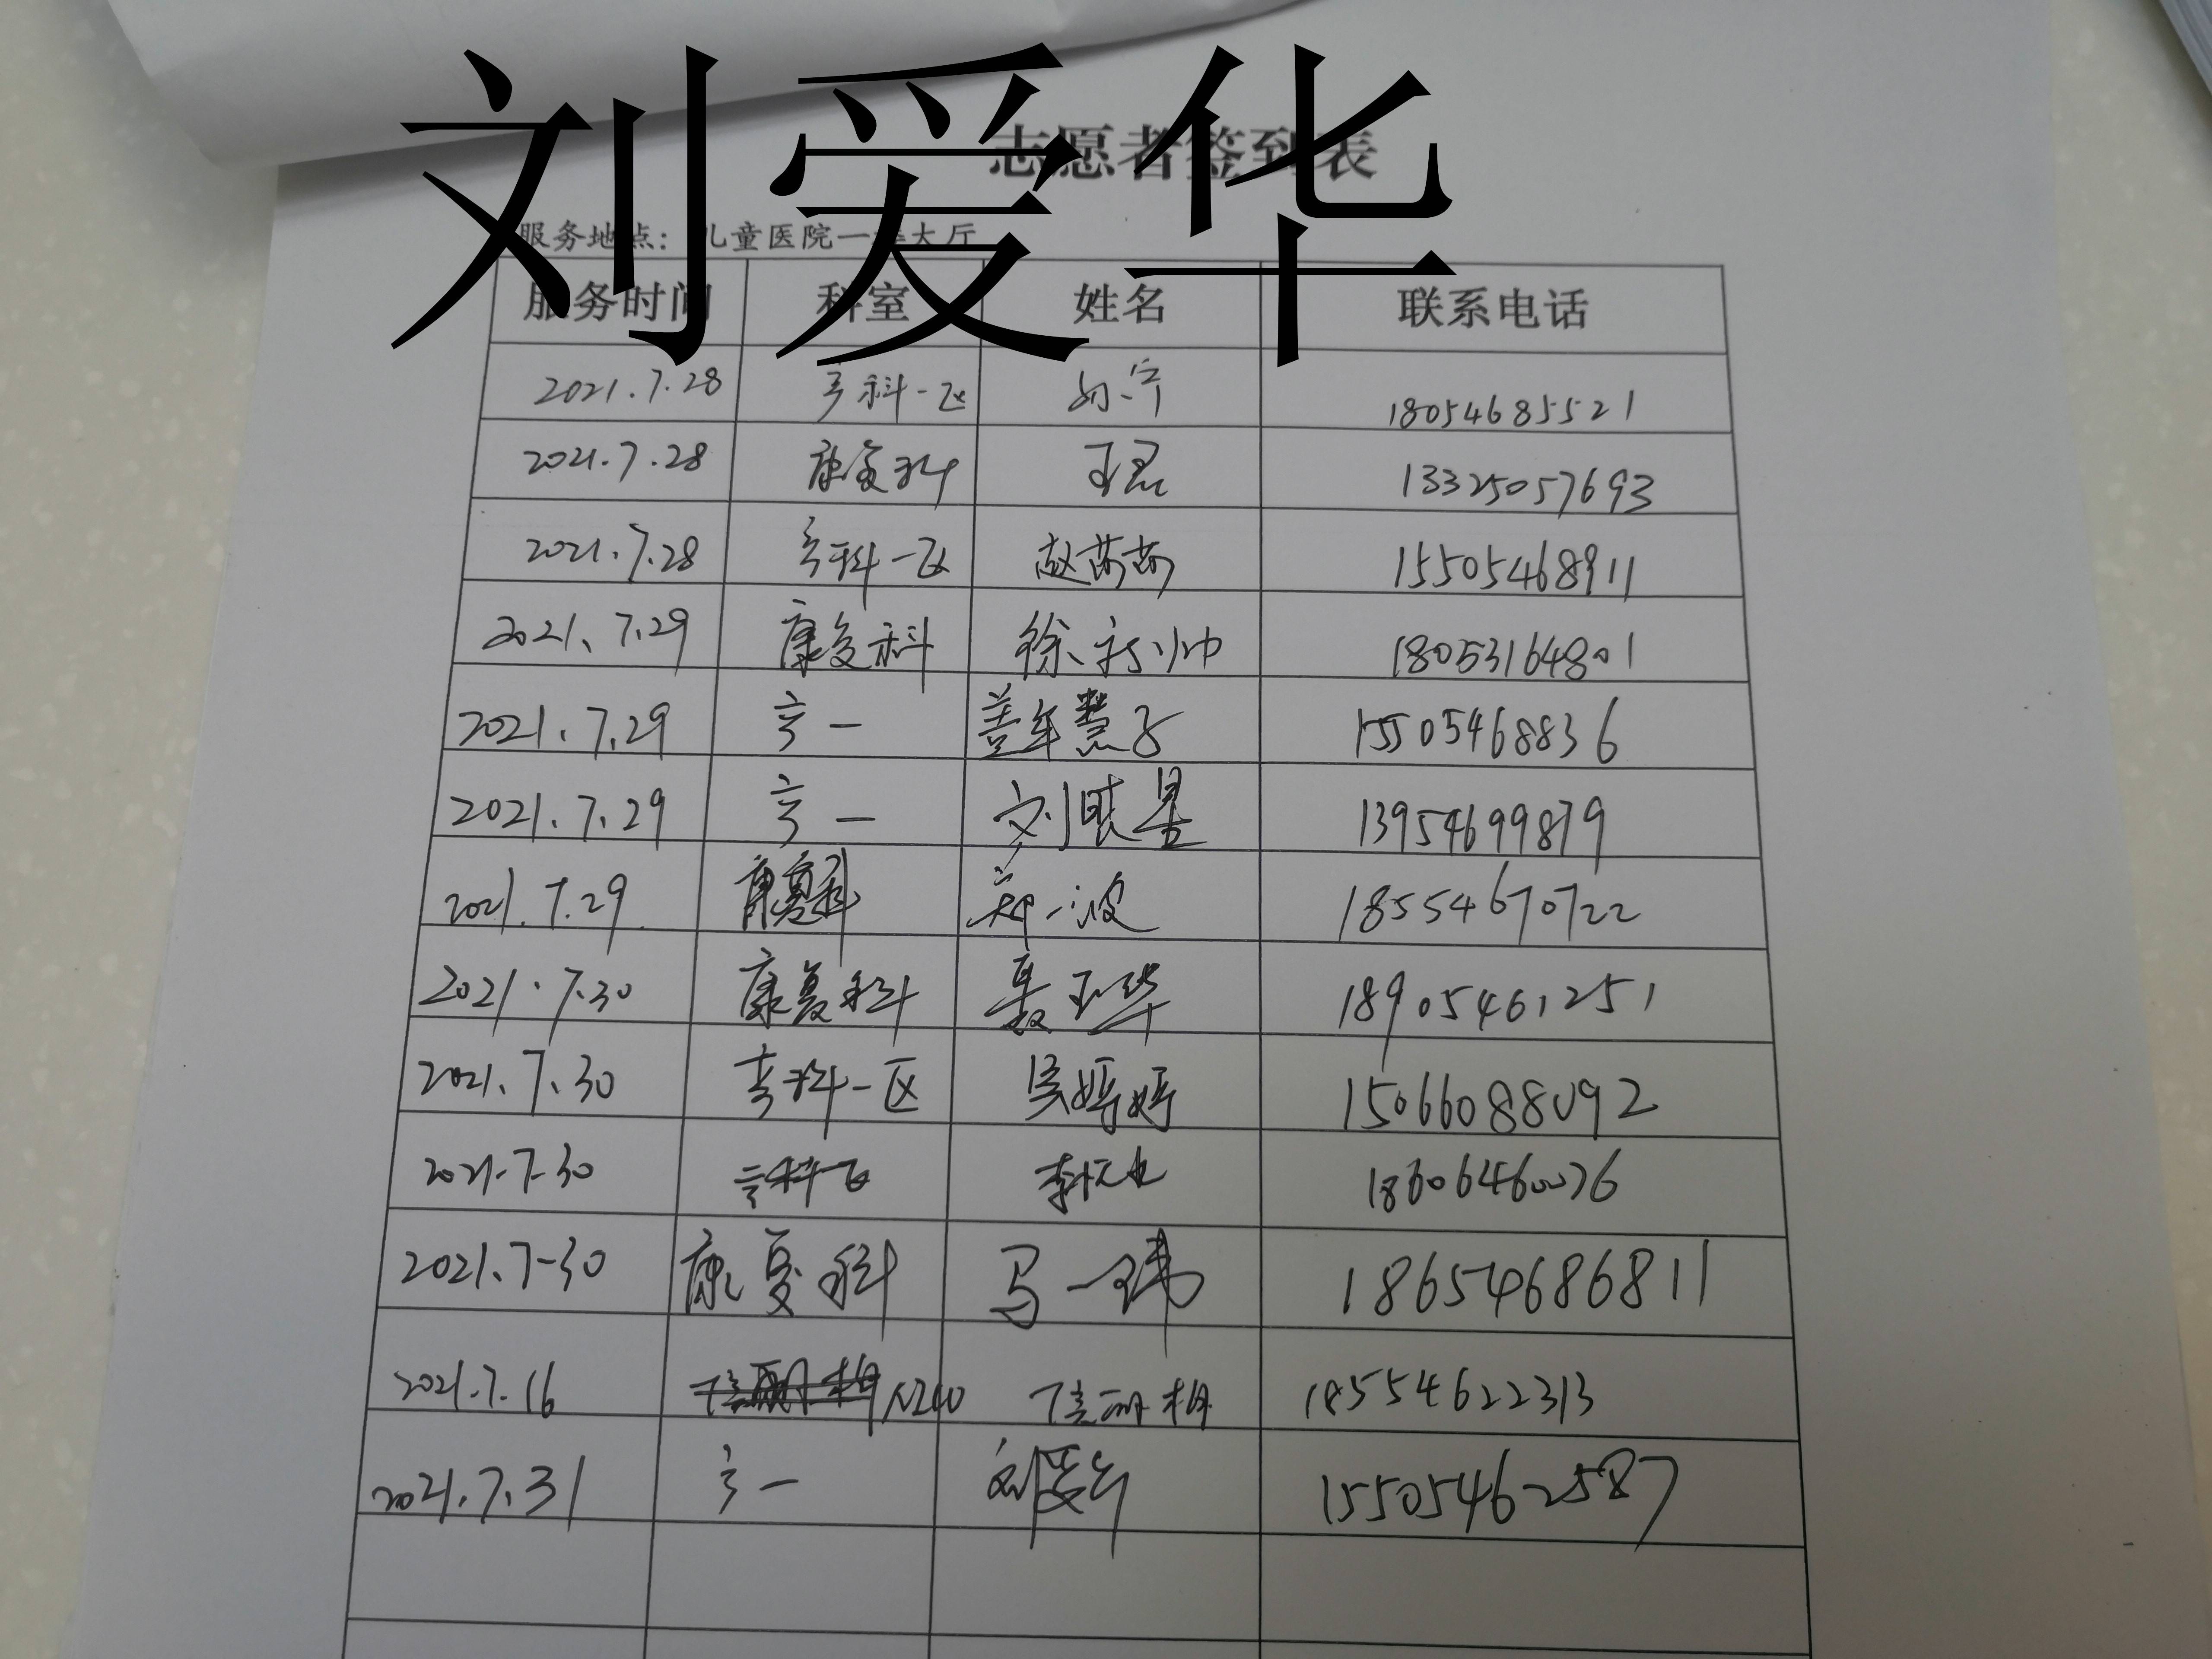 刘爱华
志愿者签到表
服务地点：儿童医院一楼大厅
服务时间 科室 姓名 联系电话
2021.7.28 科一区 18054685521
2021.7.28 康复科 王君 13325057693
2021.7.28 科一区 赵茜茜 15505468911
2021.7.29 康复科 徐新帅 18053164801
2021.7.29 一 盖年慧子 15505468836
2021.7.29 一 刘晓星 13954699879
2021.7.29 康复科 郑波 18554670722
2021.7.30 康复科 聂玉华 18905461251
2021.7.30 科一区 吴婷婷 15066088092
2021.7.30 科 李 18606460076
2021.7-30 康复科 马一玮 18654686811
2021.7.16 18554622313
2021.7.31 一 刘爱华 15505462587